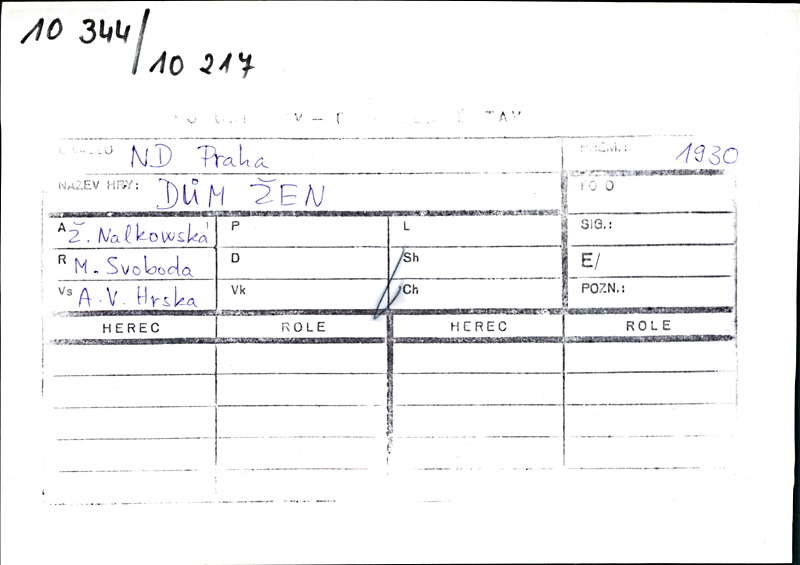 10 344/
10 217
ND Praha 1930
NÁZEV HRY: DŮM ŽEN
A Ž. Nalkowská P L SIG.:
R M. Svoboda D Sh E/
Vs A.V. Hrska Vk Ch POZN.:
HEREC ROLE HEREC ROLE